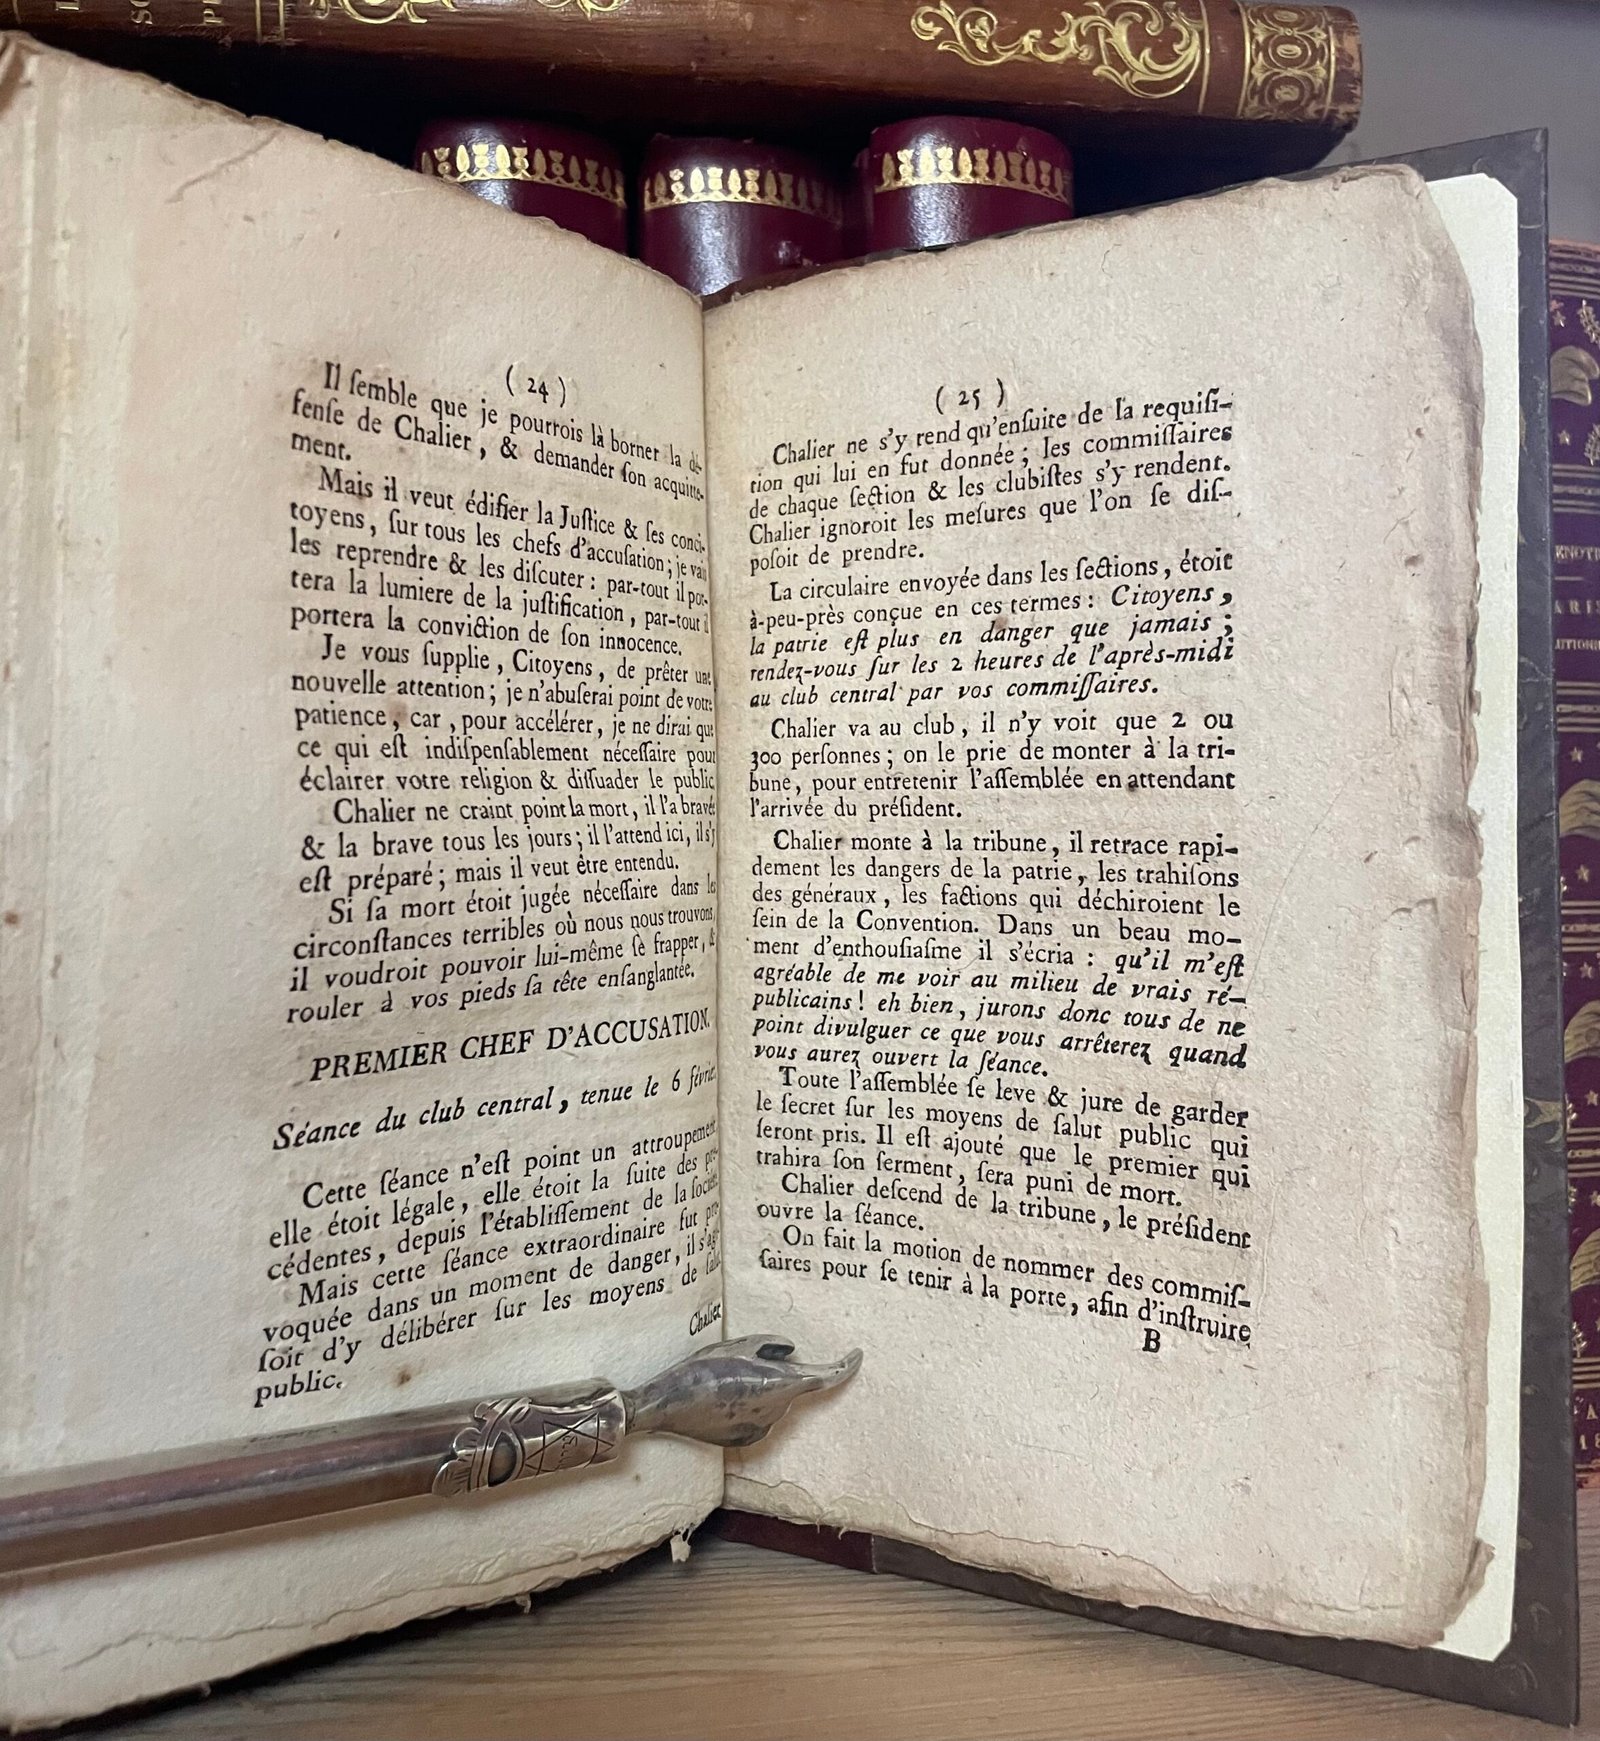 ( 24 )
Il ſemble que je pourrois là borner la dé-
fenſe de Chalier, & demander ſon acquitte-
ment.
Mais il veut édifier la Juſtice & ſes conci-
toyens, ſur tous les chefs d'accuſation; je vais
les reprendre & les diſcuter: par-tout il por-
tera la lumiere de la juſtification, par-tout il
portera la conviction de ſon innocence.
Je vous ſupplie, Citoyens, de prêter une
nouvelle attention; je n'abuſerai point de votre
patience, car, pour accélérer, je ne dirai que
ce qui eſt indiſpenſablement néceſſaire pour
éclairer votre religion & diſſuader le public
Chalier ne craint point la mort, il l'a bravée
& la brave tous les jours; il l'attend ici, il s'y
eſt préparé; mais il veut être entendu.
Si ſa mort étoit jugée néceſſaire dans les
circonſtances terribles où nous nous trouvons,
il voudroit pouvoir lui-même ſe frapper, &
rouler à vos pieds ſa tête enſanglantée.
PREMIER CHEF D'ACCUSATION.
Séance du club central, tenue le 6 février.
Cette ſéance n'eſt point un attroupement
elle étoit légale, elle étoit la ſuite des pré-
cédentes, depuis l'établiſſement de la ſociété.
Mais cette ſéance extraordinaire fut pro-
voquée dans un moment de danger, il s'agiſ-
ſoit d'y délibérer ſur les moyens de ſalut
public.
Chalier
( 25 )
Chalier ne s'y rend qu'enſuite de la requiſi-
tion qui lui en fut donnée; les commiſſaires
de chaque ſection & les clubiſtes s'y rendent.
Chalier ignoroit les meſures que l'on ſe diſ-
poſoit de prendre.
La circulaire envoyée dans les ſections, étoit
à-peu-près conçue en ces termes: Citoyens,
la patrie eſt plus en danger que jamais;
rendez-vous ſur les 2 heures de l'après-midi
au club central par vos commiſſaires.
Chalier va au club, il n'y voit que 2 ou
300 perſonnes; on le prie de monter à la tri-
bune, pour entretenir l'aſſemblée en attendant
l'arrivée du préſident.
Chalier monte à la tribune, il retrace rapi-
dement les dangers de la patrie, les trahiſons
des généraux, les factions qui déchiroient le
ſein de la Convention. Dans un beau mo-
ment d'enthouſiaſme il s'écria: qu'il m'eſt
agréable de me voir au milieu de vrais ré-
publicains! eh bien, jurons donc tous de ne
point divulguer ce que vous arrêterez quand
vous aurez ouvert la ſéance.
Toute l'aſſemblée ſe leve & jure de garder
le ſecret ſur les moyens de ſalut public qui
ſeront pris. Il eſt ajouté que le premier qui
trahira ſon ſerment, ſera puni de mort.
Chalier deſcend de la tribune, le préſident
ouvre la ſéance.
On fait la motion de nommer des commiſ-
ſaires pour ſe tenir à la porte, afin d'inſtruire
B